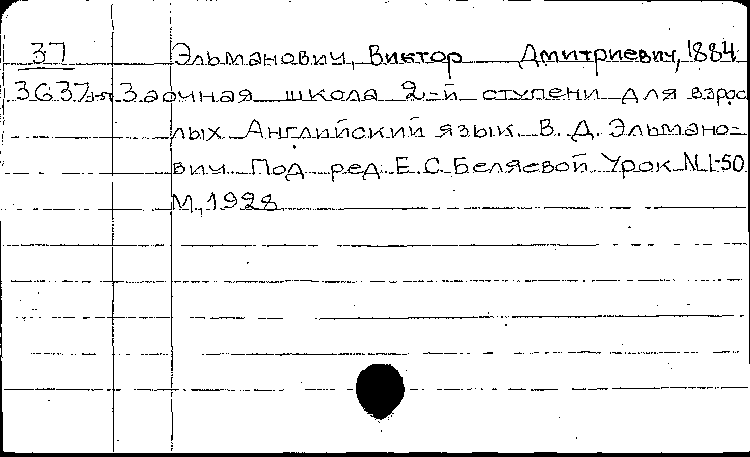 37 Эльманович, Виктор Дмитриевич, 1884
3637 Заочная школа 2-й ступени для взрос
лых Английский язык. В. Д. Эльмано-
вич Под ред. Е. С. Беляевой Урок N 1-50
М., 1928